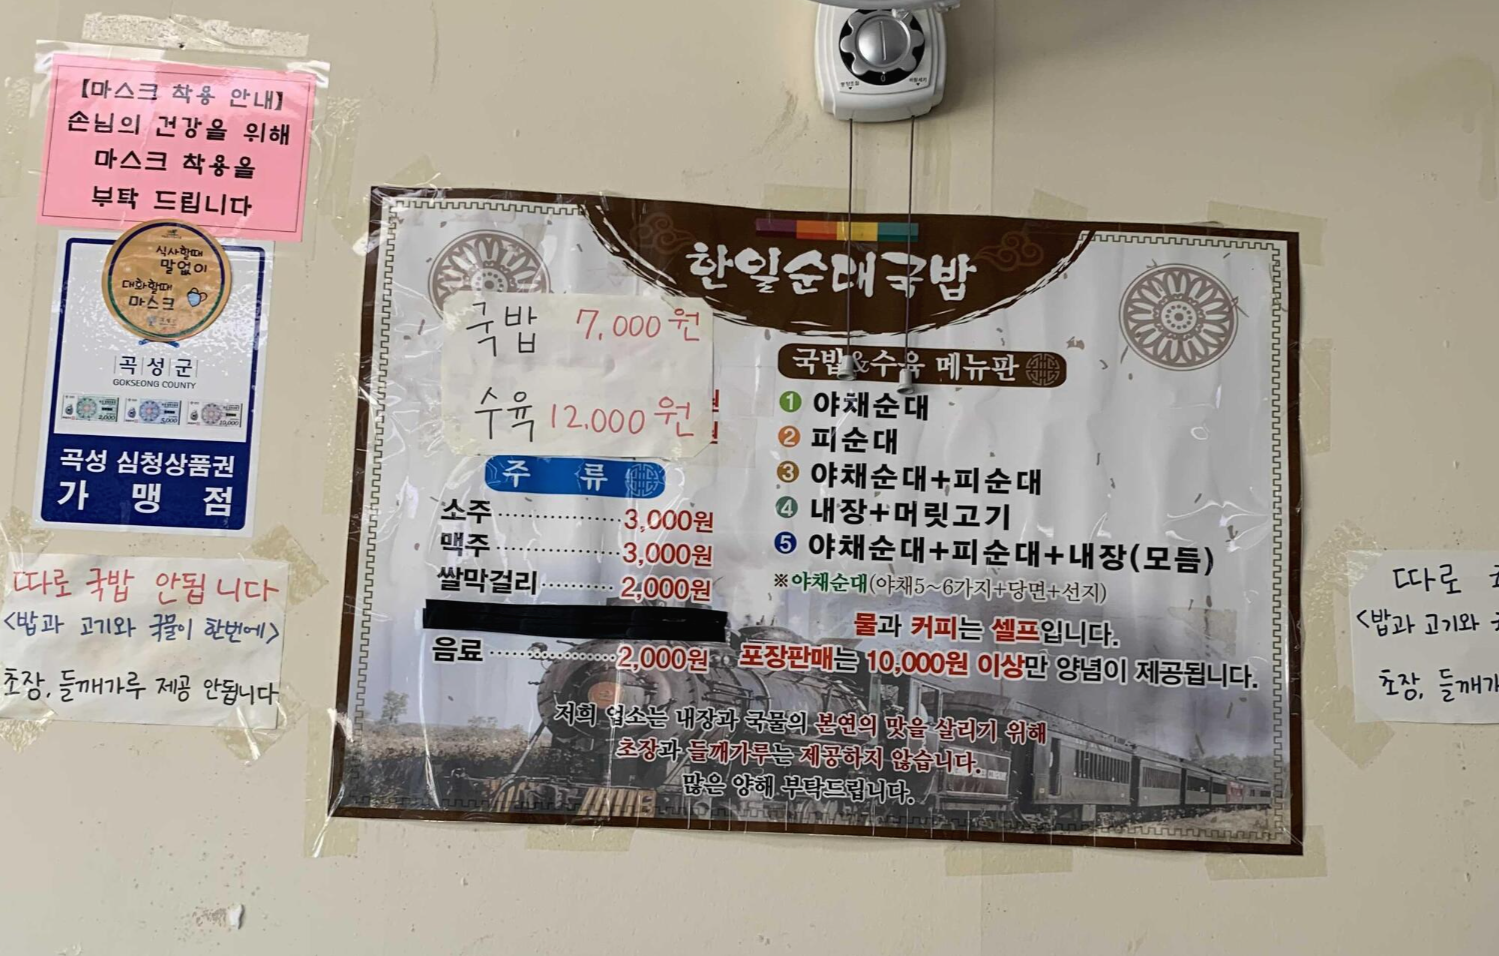 [마스크 착용 안내]
손님의 건강을 위해
마스크 착용을
부탁 드립니다
식사할때
말없이
대화할때
마스크
곡성군
GOKSEONG COUNTY
곡성 심청상품권
가맹점
따로 국밥 안됩니다
<밥과 고기와 국물이 한번에>
초장, 들깨가루 제공 안됩니다
한일순대국밥
국밥 7,000원
수육 12,000원
주류
소주 3,000원
맥주 3,000원
쌀막걸리 2,000원
음료 2,000원
국밥&수육 메뉴판
1 야채순대
2 피순대
3 야채순대+피순대
4 내장+머릿고기
5 야채순대+피순대+내장(모듬)
※야채순대(야채5~6가지+당면+선지)
물과 커피는 셀프입니다.
포장판매는 10,000원 이상만 양념이 제공됩니다.
저희 업소는 내장과 국물의 본연의 맛을 살리기 위해
초장과 들깨가루는 제공하지 않습니다.
많은 양해 부탁드립니다.
따로
<밥과 고기와
초장, 들깨가